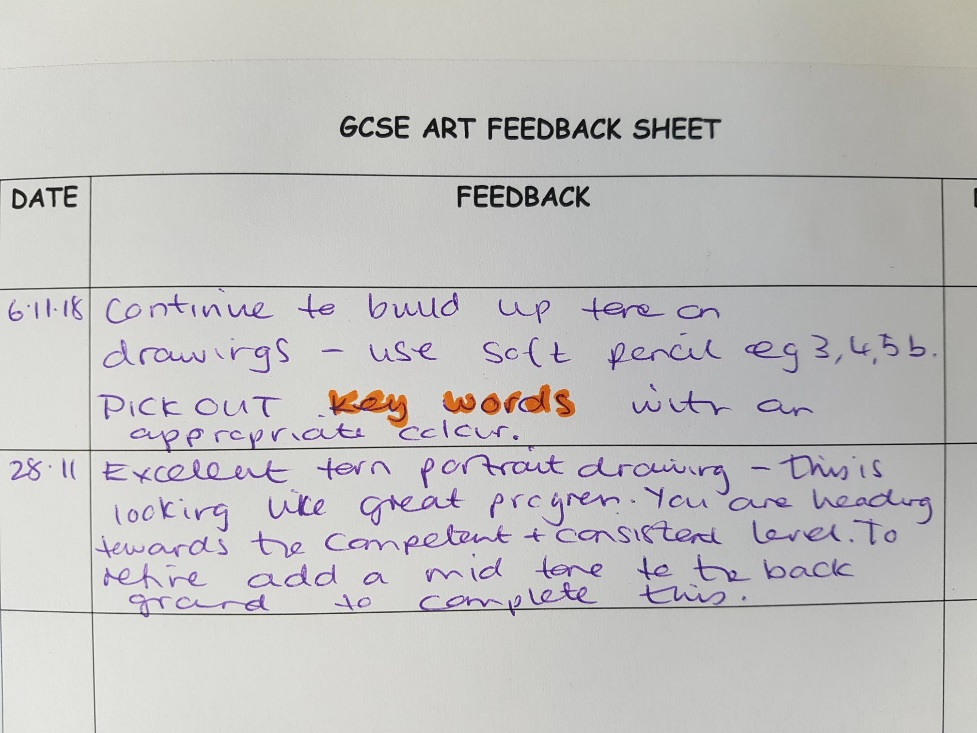 GCSE ART FEEDBACK SHEET
DATE
FEEDBACK
6.11.18
Continue to build up tone on
drawings - use soft pencil eg 3,4,5b.
PICK OUT key words with an
appropriate colour.
28.11
Excellent torn portrait drawing - this is
looking like great progress. You are heading
towards the competent + consistent level. To
refine add a mid tone to the back
ground to complete this.